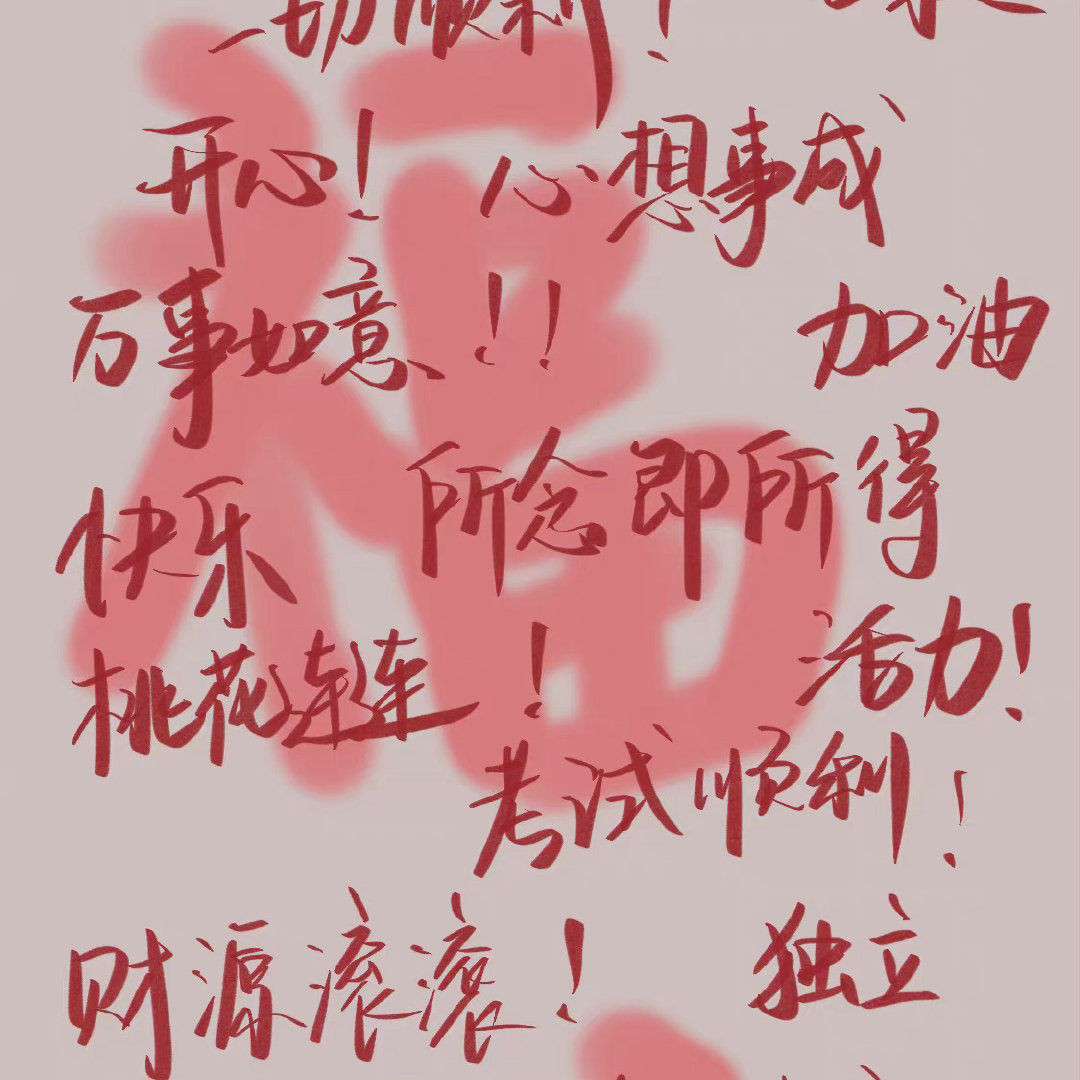 一切顺利！
开心！ 心想事成
万事如意！！ 加油
快乐 所念即所得
桃花连连！ 活力！
考试顺利！
财源滚滚！ 独立
福